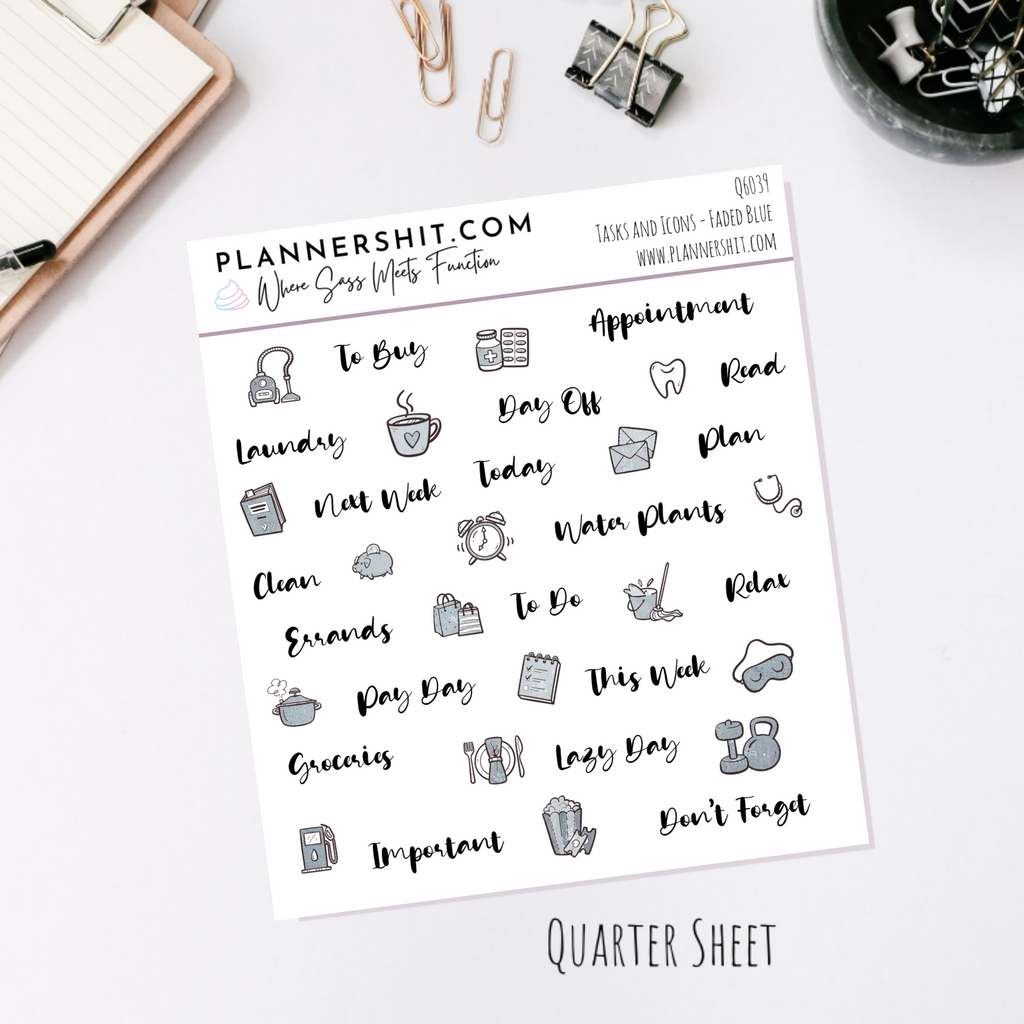 PLANNERSHIT.COM
Where Sass Meets Function
Q6039
Tasks and Icons - Faded Blue
www.plannershit.com
To Buy
Appointment
Read
Day Off
Laundry
Plan
Today
Next Week
Water Plants
Clean
To Do
Relax
Errands
This Week
Pay Day
Lazy Day
Groceries
Don't Forget
Important
Quarter Sheet